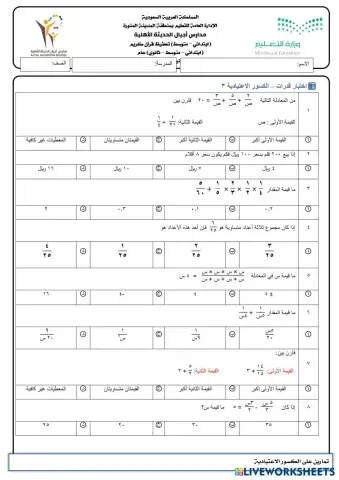 المملكة العربية السعودية
الإدارة العامة للتعليم بمنطقة المدينة المنورة
مدارس أجيال الحديثة الأهلية
(ابتدائي - متوسط) تحفيظ قرآن كريم
(ابتدائي - متوسط - ثانوي) عام
وزارة التعليم
Ministry of Education
الاسم:
المدرسة:
الصف:
اختبار قدرات – الكسور الاعتيادية ٣
١ من المعادلة التالية ٣/ص + ٥/ص + ٢/ص = ٢٠ قارن بين
القيمة الأولى : ص القيمة الثانية:
القيمة الأولى أكبر القيمة الثانية أكبر القيمتان متساويتان المعطيات غير كافية
٢ إذا بيع ٢٠٠ قلم بسعر ١٠٠ ريال فكم يكون سعر ٨ أقلام
٤ ريال ٧ ريال ١٠ ريال ١٦ ريال
٣ ما قيمة المقدار ١/٤ × ٢/١ × ٢/٣ × ١/٥ + ٥/٦٠
٠,٢ ٠,١ ٠,٣ ٢
٤ إذا كان مجموع ثلاثة أعداد متساوية هو ٦/٢٥ فإن أحد هذه الأعداد هو
٣/٢٥ ٢/٢٥ ١/٢٥ ٤/٢٥
٥ ما قيمة س في المعادلة س × س × س × س / س + س + س + س = ٤ س
٤ ± ٤ ٤٠ ١٦
٦ ما قيمة المقدار ١/٥س + ١/٤س
٥س/٢٠ ١/٩س ١/س٢ ٩/٢٠س
٧ قارن بين:
القيمة الأولى: ٣ ١٤/١٥ القيمة الثانية: ٢ +
القيمة الأولى أكبر القيمة الثانية أكبر القيمتان متساويتان المعطيات غير كافية
٨ إذا كان ٥س/٣ - ٣س/٢ = ٥ ما قيمة س؟
٣٥ ٣٠ ٢٠ ٢٥
تمارين على الكسور الاعتيادية
LIVEWORKSHEETS